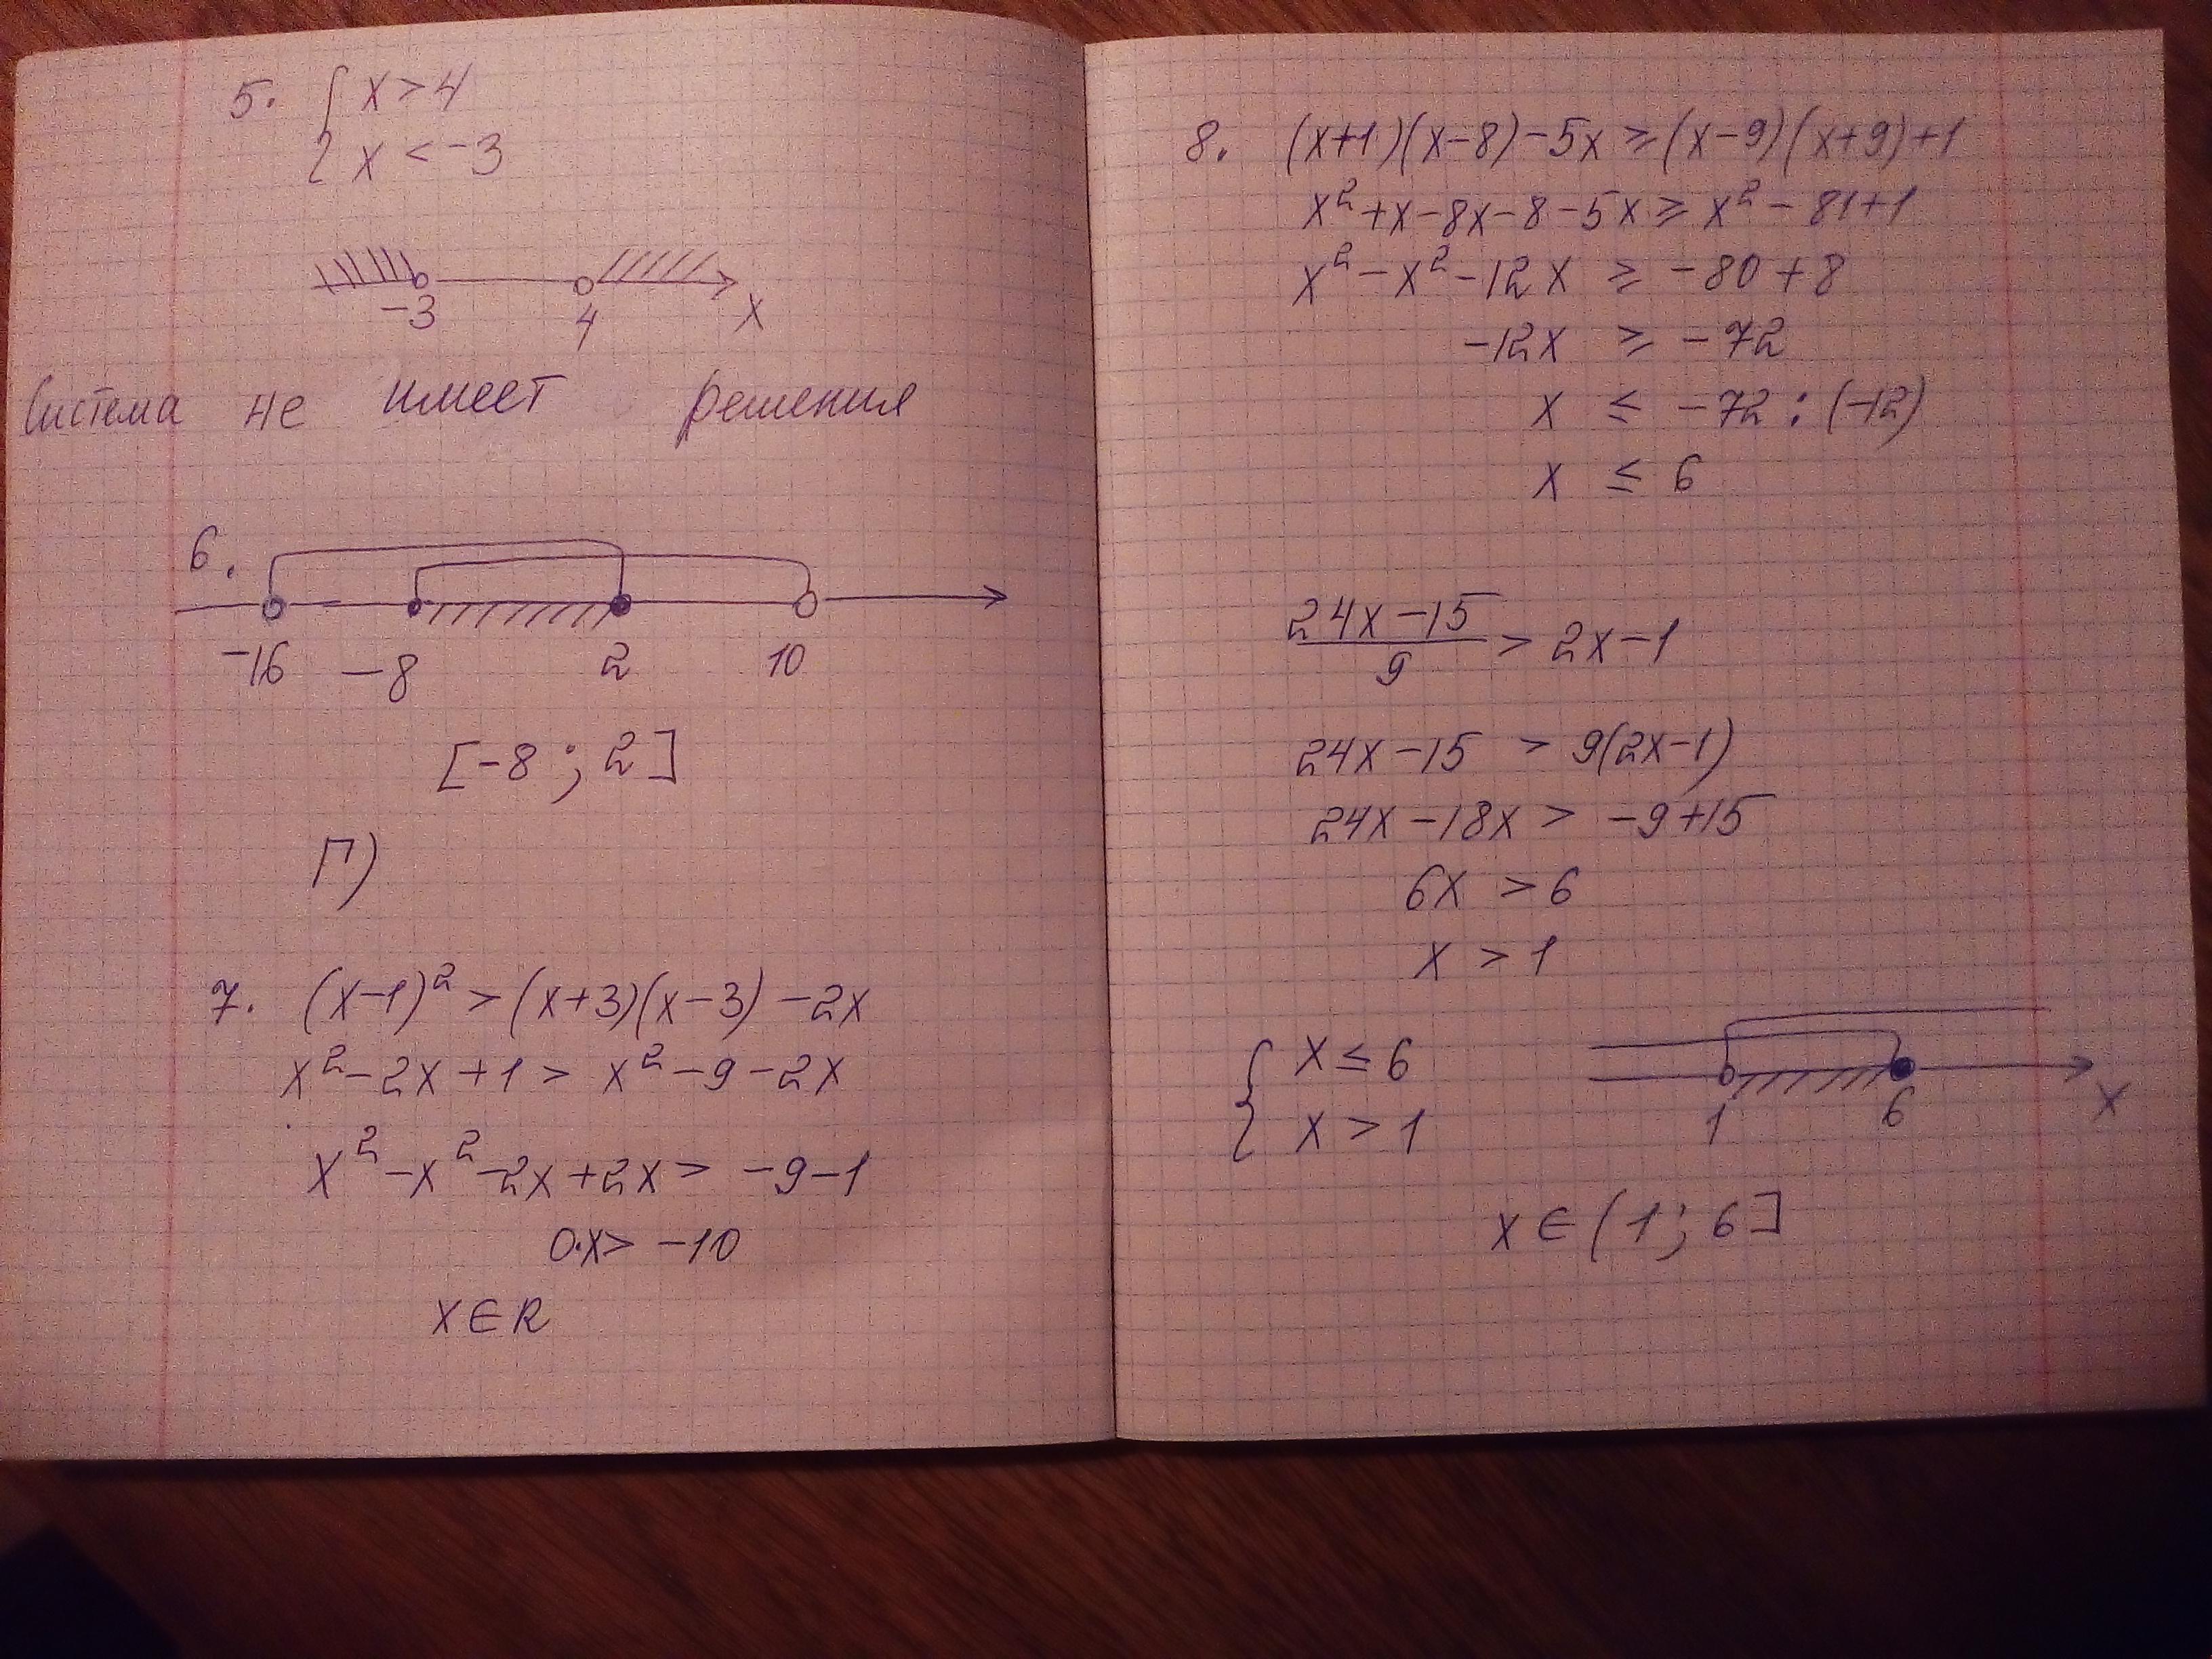 5. { x > 4
{ x < -3
-3 4 x
Система не имеет решения
6.
-16 -8 2 10
[-8; 2]
Г)
7. (x-1)² > (x+3)(x-3) - 2x
x² - 2x + 1 > x² - 9 - 2x
x² - x² - 2x + 2x > -9 - 1
0·x > -10
x ∈ R
8. (x+1)(x-8) - 5x ≥ (x-9)(x+9) + 1
x² + x - 8x - 8 - 5x ≥ x² - 81 + 1
x² - x² - 12x ≥ -80 + 8
-12x ≥ -72
x ≤ -72 : (-12)
x ≤ 6
24x - 15
――― > 2x - 1
9
24x - 15 > 9(2x-1)
24x - 18x > -9 + 15
6x > 6
x > 1
{ x ≤ 6
{ x > 1
1 6 x
x ∈ (1; 6]